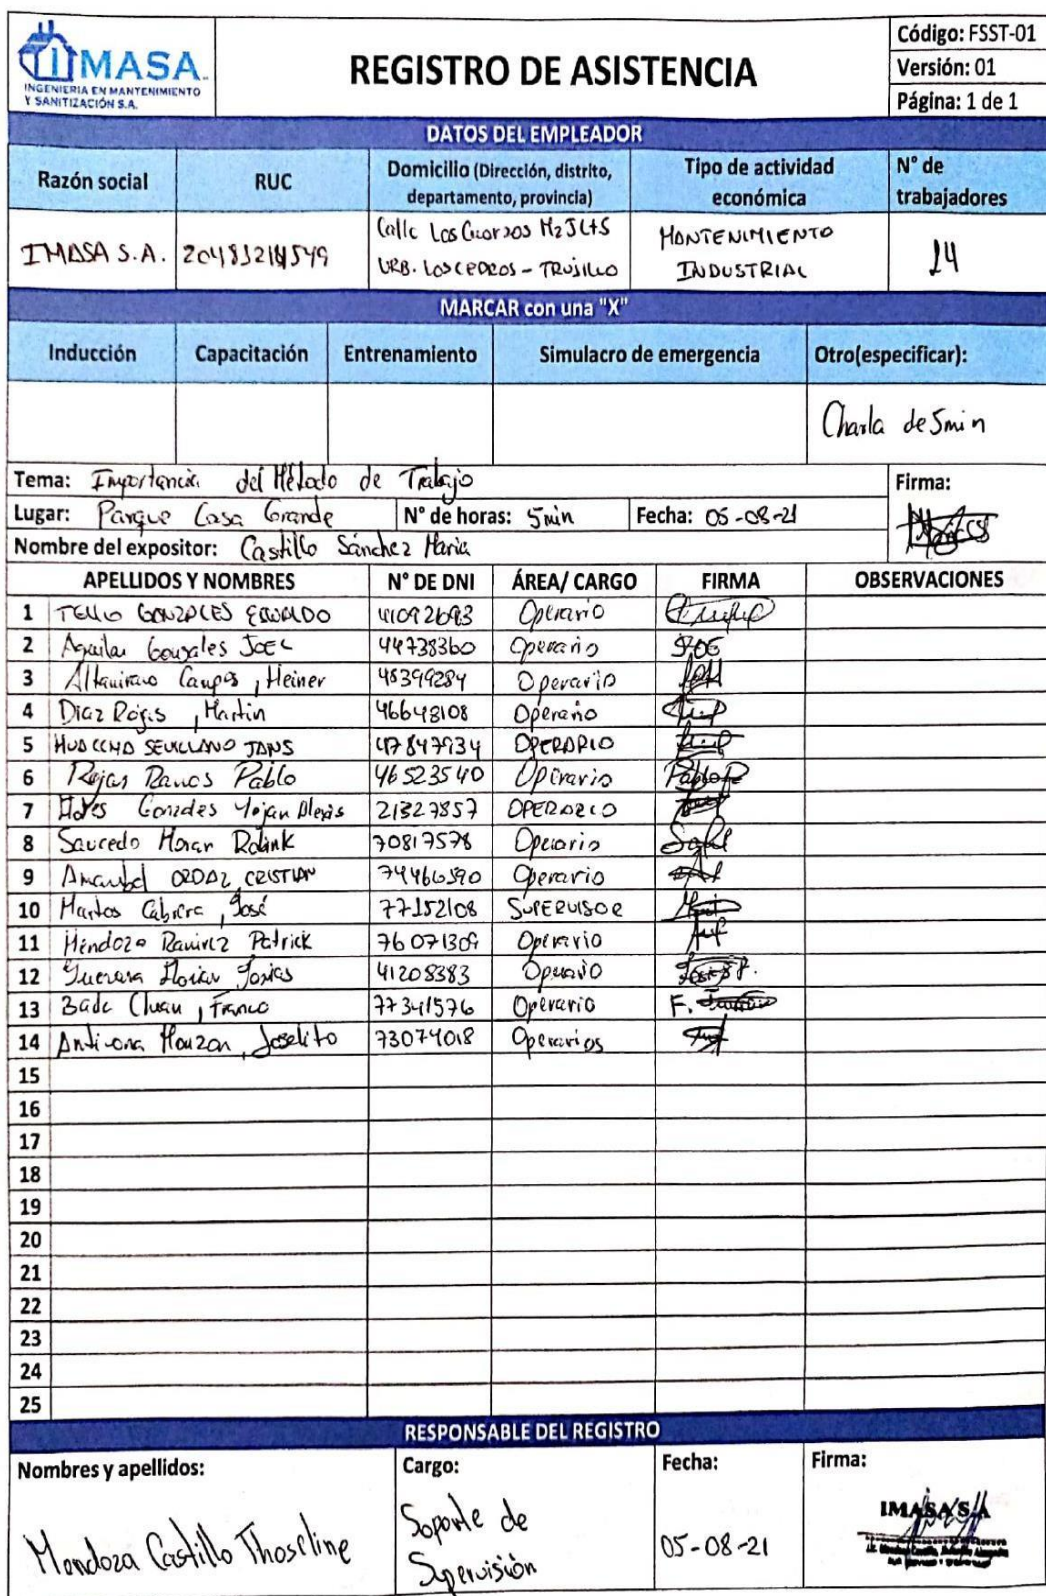 IMASA
INGENIERIA EN MANTENIMIENTO
Y SANITIZACIÓN S.A.
REGISTRO DE ASISTENCIA
Código: FSST-01
Versión: 01
Página: 1 de 1
DATOS DEL EMPLEADOR
Razón social RUC Domicilio (Dirección, distrito, departamento, provincia) Tipo de actividad económica N° de trabajadores
IMASA S.A. Calle Los URB. LOS CEDROS - TRUJILLO MANTENIMIENTO INDUSTRIAL 14
MARCAR con una "X"
Inducción Capacitación Entrenamiento Simulacro de emergencia Otro(especificar):
Charla de 5min
Tema: Importancia del Método de Trabajo Firma:
Lugar: Parque Casa Grande N° de horas: 5min Fecha: 05-08-21
Nombre del expositor: Castillo Sánchez Maria
APELLIDOS Y NOMBRES N° DE DNI ÁREA/ CARGO FIRMA OBSERVACIONES
1 TELLO GONZALES 41092693 Operario
2 Aguilar Gonzales JOEL 44738360 Operario JOE
3 Altamirano Campos, Heiner 48399284 Operario
4 Diaz Rojas, Martin 46648108 Operario
5 47847934 OPERARIO
6 Rojas Ramos Pablo 46523540 Operario Pablo R
7 21327857 OPERARIO
8 Saucedo 70817578 Operario
9 CRISTIAN Operario
10 Martos Cabrera, José 77152108 SUPERVISOR
11 Mendoza Ramirez Patrick 76071309 Operario
12 41208383 Operario
13 Franco 77341576 Operario F.
14 Joselito 73074018 Operarios
15
16
17
18
19
20
21
22
23
24
25
RESPONSABLE DEL REGISTRO
Nombres y apellidos: Cargo: Fecha: Firma:
Mendoza Castillo Thoseline Soporte de Supervisión 05-08-21 IMASA S.A